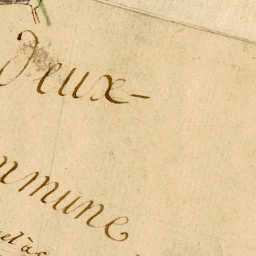 Deux-
mmune